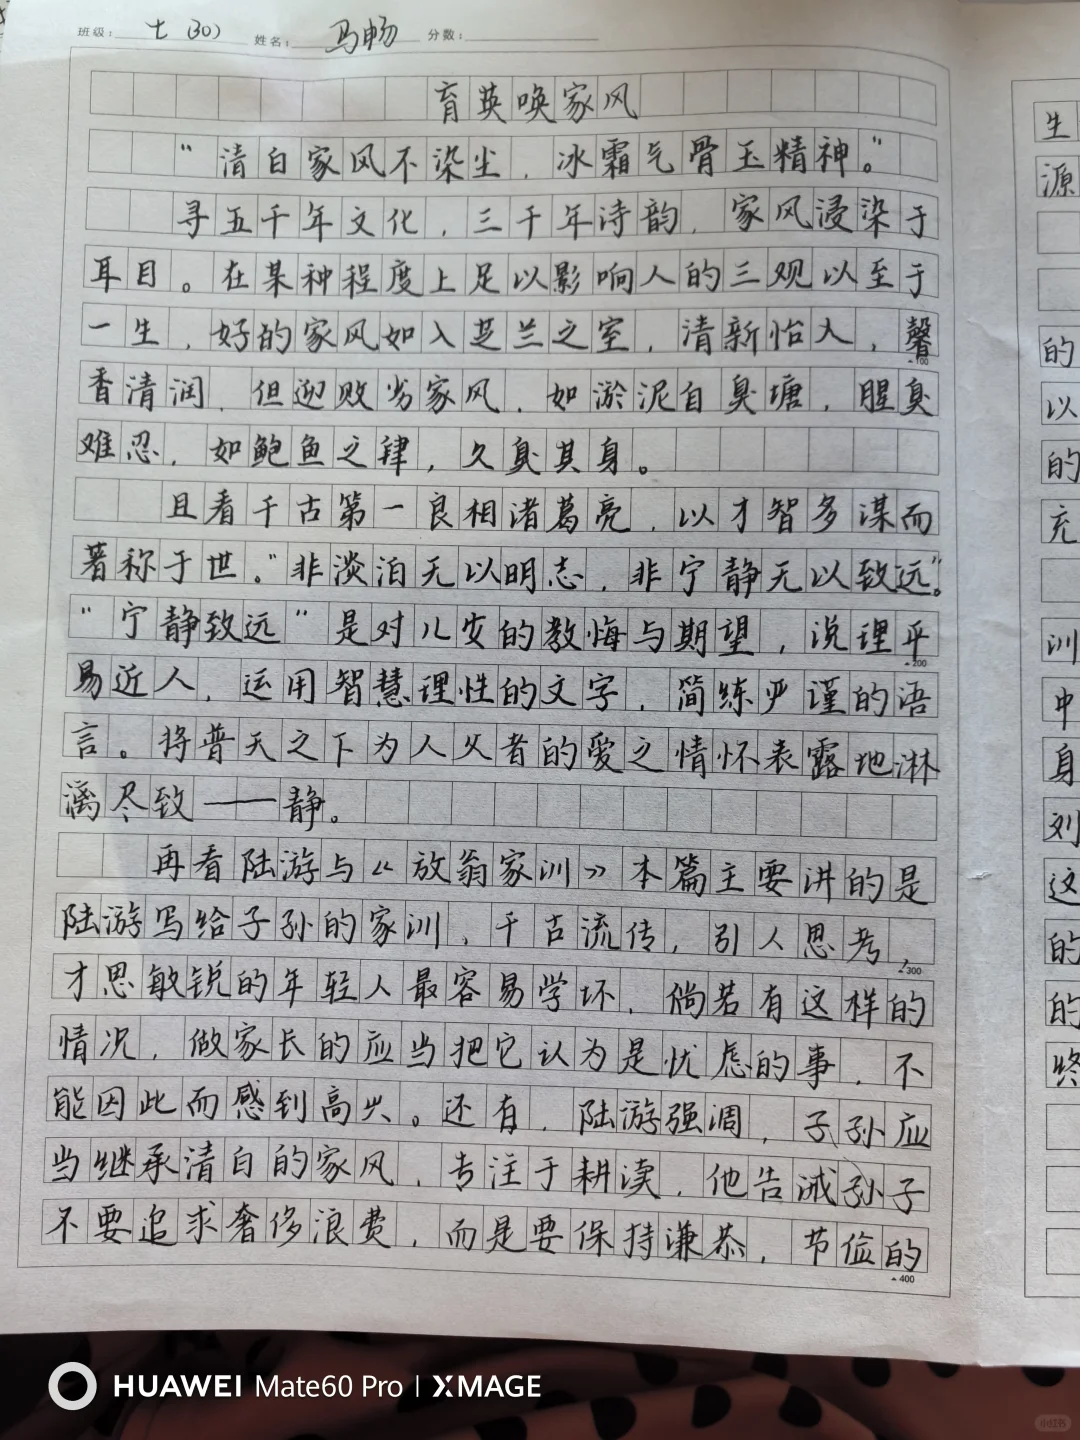 班级: 七(30) 姓名: 马畅 分数:
育英唤家风
“清白家风不染尘，冰霜气骨玉精神。”
寻五千年文化，三千年诗韵，家风浸染于
耳目。在某种程度上足以影响人的三观以至于
一生，好的家风如入芝兰之室，清新怡人，馨
100
香清润，但迎败劣家风，如淤泥自臭塘，腥臭
难忍，如鲍鱼之肆，久臭其身。
且看千古第一良相诸葛亮，以才智多谋而
著称于世。“非淡泊无以明志，非宁静无以致远”。
“宁静致远”是对儿女的教悔与期望，说理平
200
易近人，运用智慧理性的文字，简练严谨的语
言。将普天之下为人父者的爱之情怀表露地淋
漓尽致——静。
再看陆游与《放翁家训》本篇主要讲的是
陆游写给子孙的家训，千古流传，引人思考，
300
才思敏锐的年轻人最容易学坏，倘若有这样的
情况，做家长的应当把它认为是忧虑的事，不
能因此而感到高兴。还有，陆游强调，子孙应
当继承清白的家风，专注于耕渎，他告诫孙子
不要追求奢侈浪费，而是要保持谦恭，节俭的
400
生
源
的
以
的
充
训
中
身
刘
这
的
的
终
HUAWEI Mate60 Pro | XMAGE
小红书